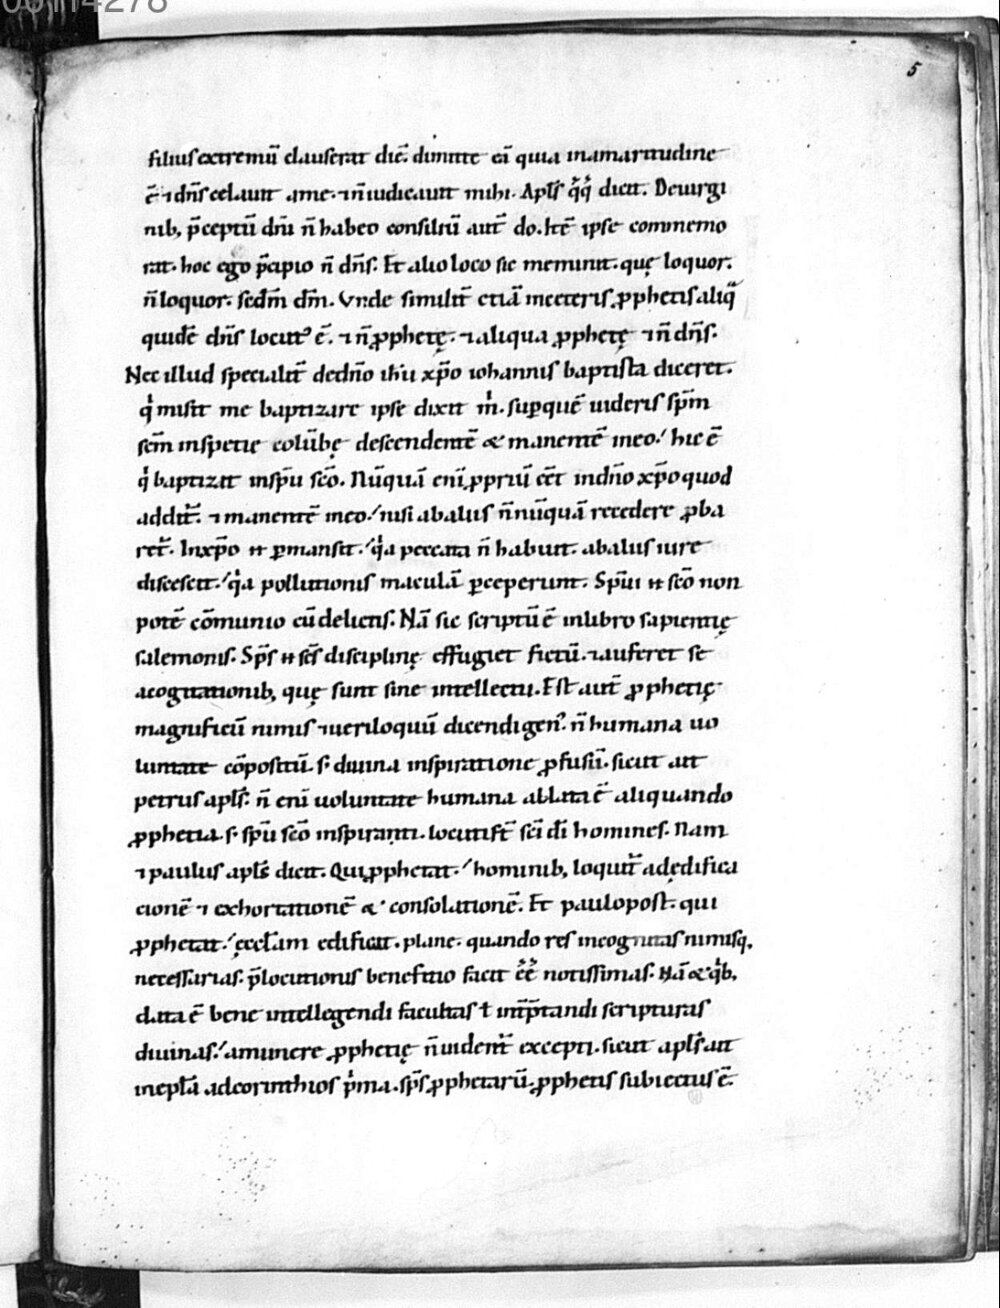 5
filius extremū clauserat diē. dimitte eā quia in amaritudine
ē ⁊ dn̄s celauit a me. ⁊ n̄ indicauit mihi. Apl̄s q̊q̊ dicit. De uirgi
nib; p̄ceptū dn̄i n̄ habeo consiliū aut̄ do. Itē ipse commemo
rat. hoc ego p̄cipio n̄ dn̄s. Et alio loco sic meminit. quę loquor.
n̄ loquor. scdm̄ dm̄. Vnde similit̄ etiā in ceteris ꝓphetis aliq̄
quidē dn̄s locut᷒ ē. ⁊ n̄ ꝓphetę. ⁊ aliqua ꝓphetę ⁊ n̄ dn̄s.
Nec illud specialit̄ de dn̄o ih̄u xp̄o iohannis baptista diceret.
qͥ misit me baptizare ipse dixit mͥ. sup quē uideris sp̄m
scm̄ in specie colūbę descendentē & manentē in eo. hic ē
qͥ baptizat in sp̄u scō. Nūquā eni ꝓpriū eēt in dn̄o xp̄o quod
addit̄. ⁊ manentē in eo. nisi ab aliis n̄nūquā recedere ꝓba
ret̄. In xp̄o ⁊ pmansit. qͥa peccata n̄ habuit. ab aliis iure
discescit. qͥa pollutionis maculā pceperunt. Sp̄ui ⁊ scō non
potē cōmunio cū delictis. Nā sic scriptū ē in libro sapientię
salemonis. Sp̄s ⁊ scs̄ disciplinę effugiet fictū. ⁊ auferet se
a cogitationib; quę sunt sine intellectu. Est aut̄ ꝓphetię
magnificū nimis ⁊ ueriloquū dicendi gen᷒. n̄ humana uo
luntate cōpositū. s; diuina inspiratione ꝓfusū. sicut ait
petrus apl̄s. n̄ eni uoluntate humana ablata ē aliquando
ꝓphetia. s; sp̄u scō inspiranti. locuti st̄ sci dī homines. Nam
⁊ paulus apl̄s dicit. Qui ꝓphetat. hominib; loquit̄ ad edifica
cionē ⁊ exhortationē & consolationē. Et paulo post. qui
ꝓphetat. ęccl̄am edificat. plane. quando res incognitas nimisq;
necessarias. p̄locutionis beneficio facit eē notissimas. Nā & qͥb;
data ē bene intellegendi facultas ł int̄p̄tandi scripturas
diuinas. a munere ꝓphetię n̄ uident̄ excepti. sicut apl̄s ait
in epl̄a ad corinthios pͥma. sp̄s ꝓphetarū. ꝓphetis subiectus ē.